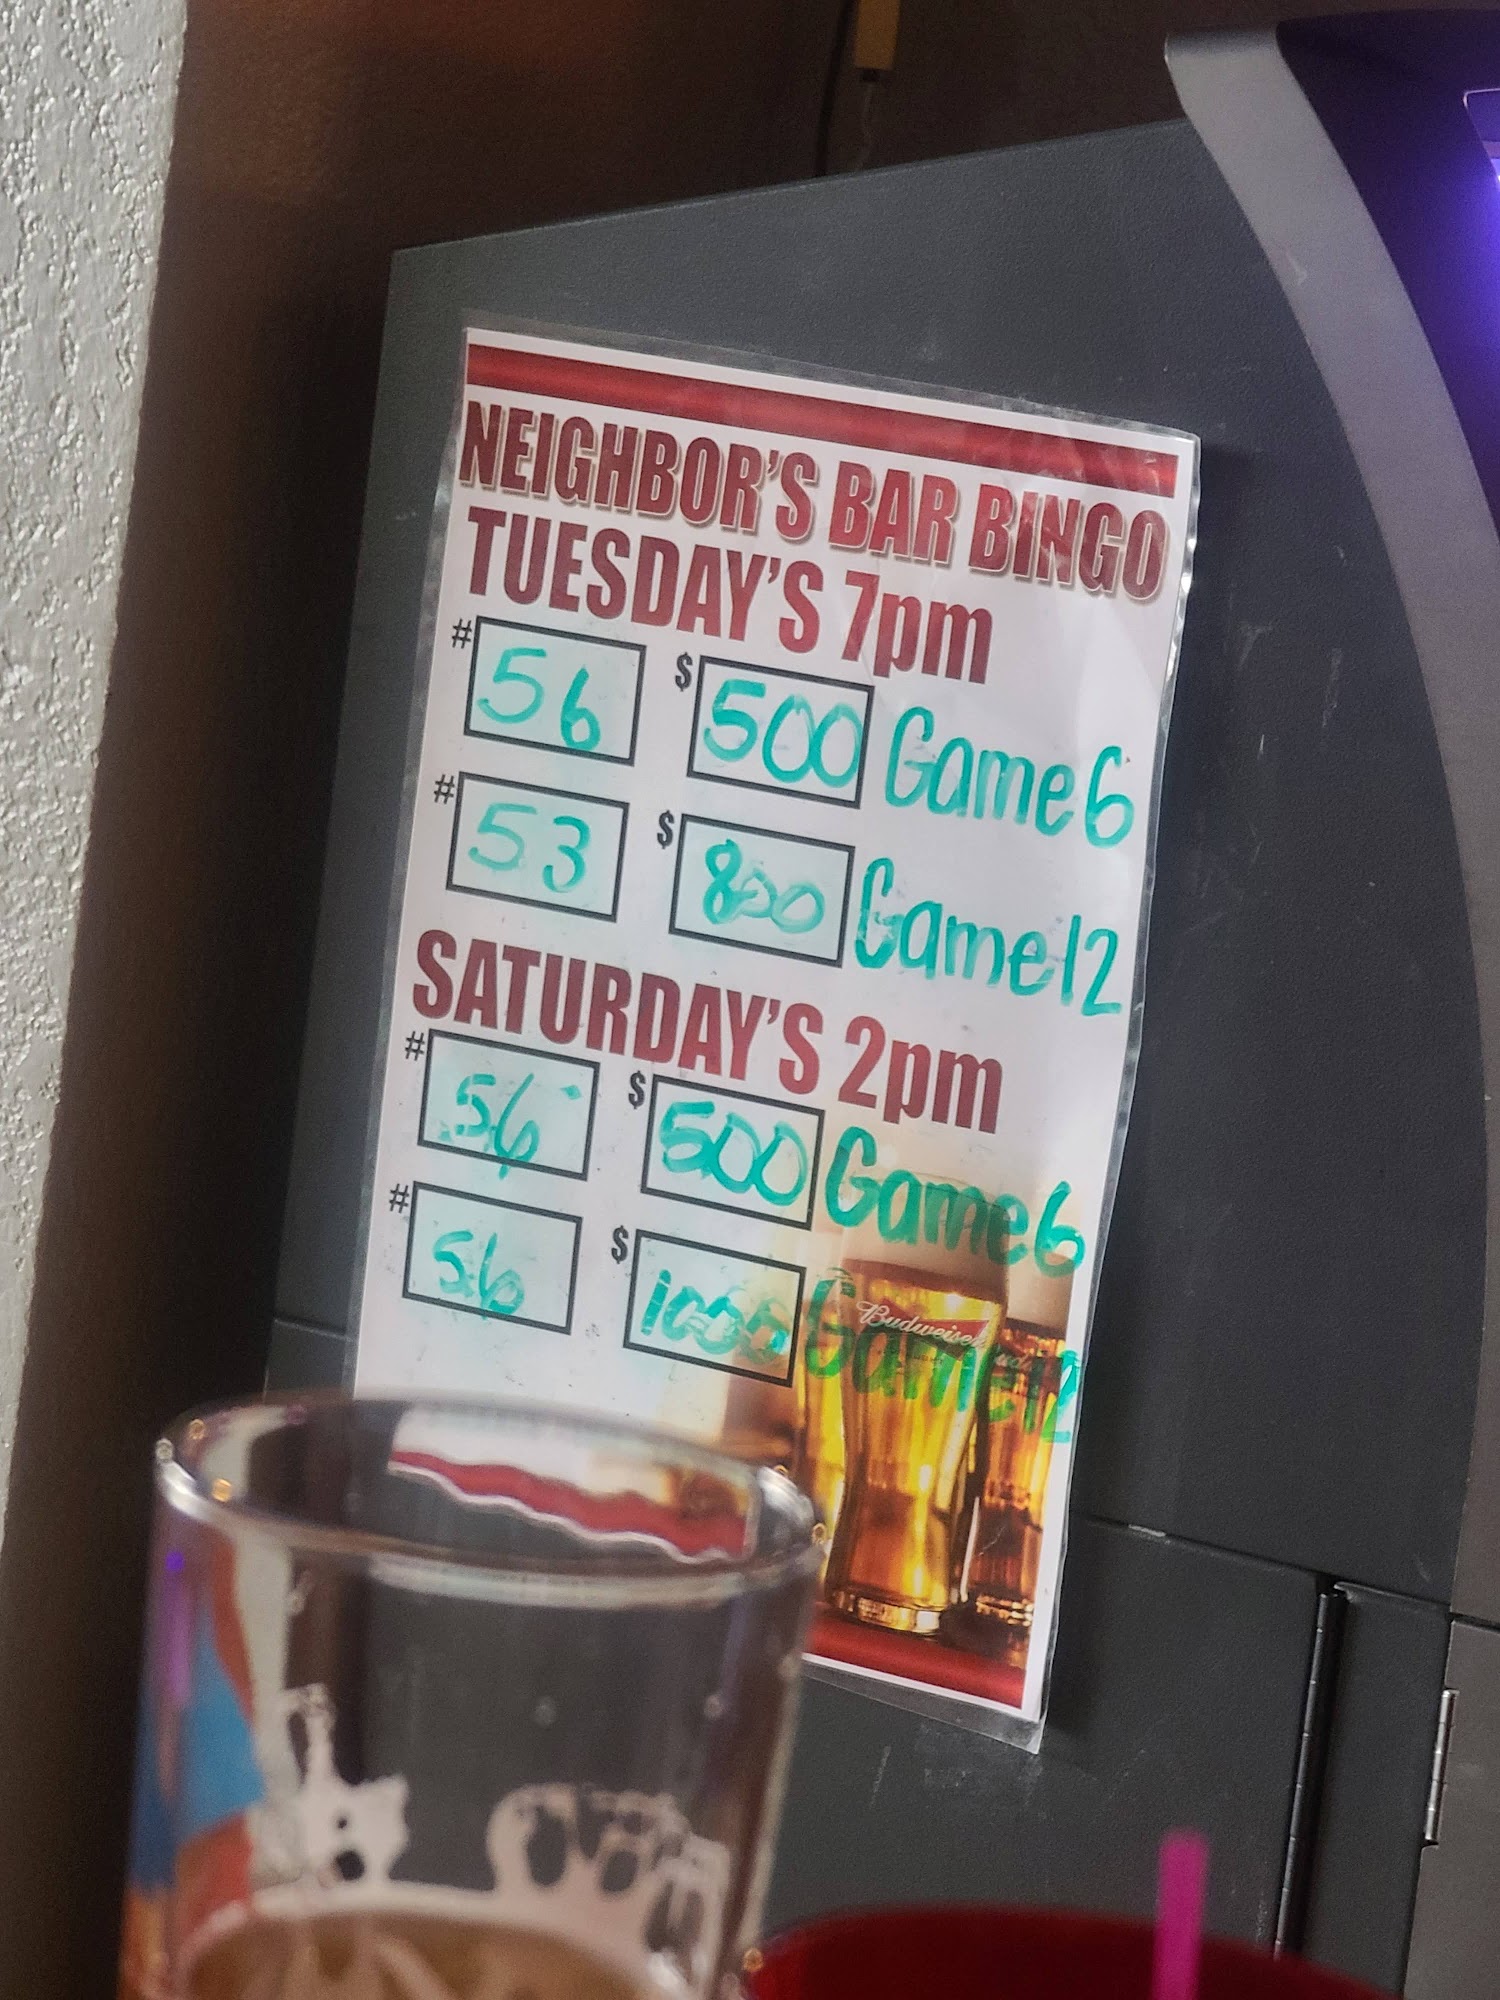 NEIGHBOR'S BAR BINGO
TUESDAY'S 7pm
# 56 $ 500 Game 6
# 53 $ 800 Game 12
SATURDAY'S 2pm
# 56 $ 500 Game 6
# 56 $ 1000 Game 12
Budweiser